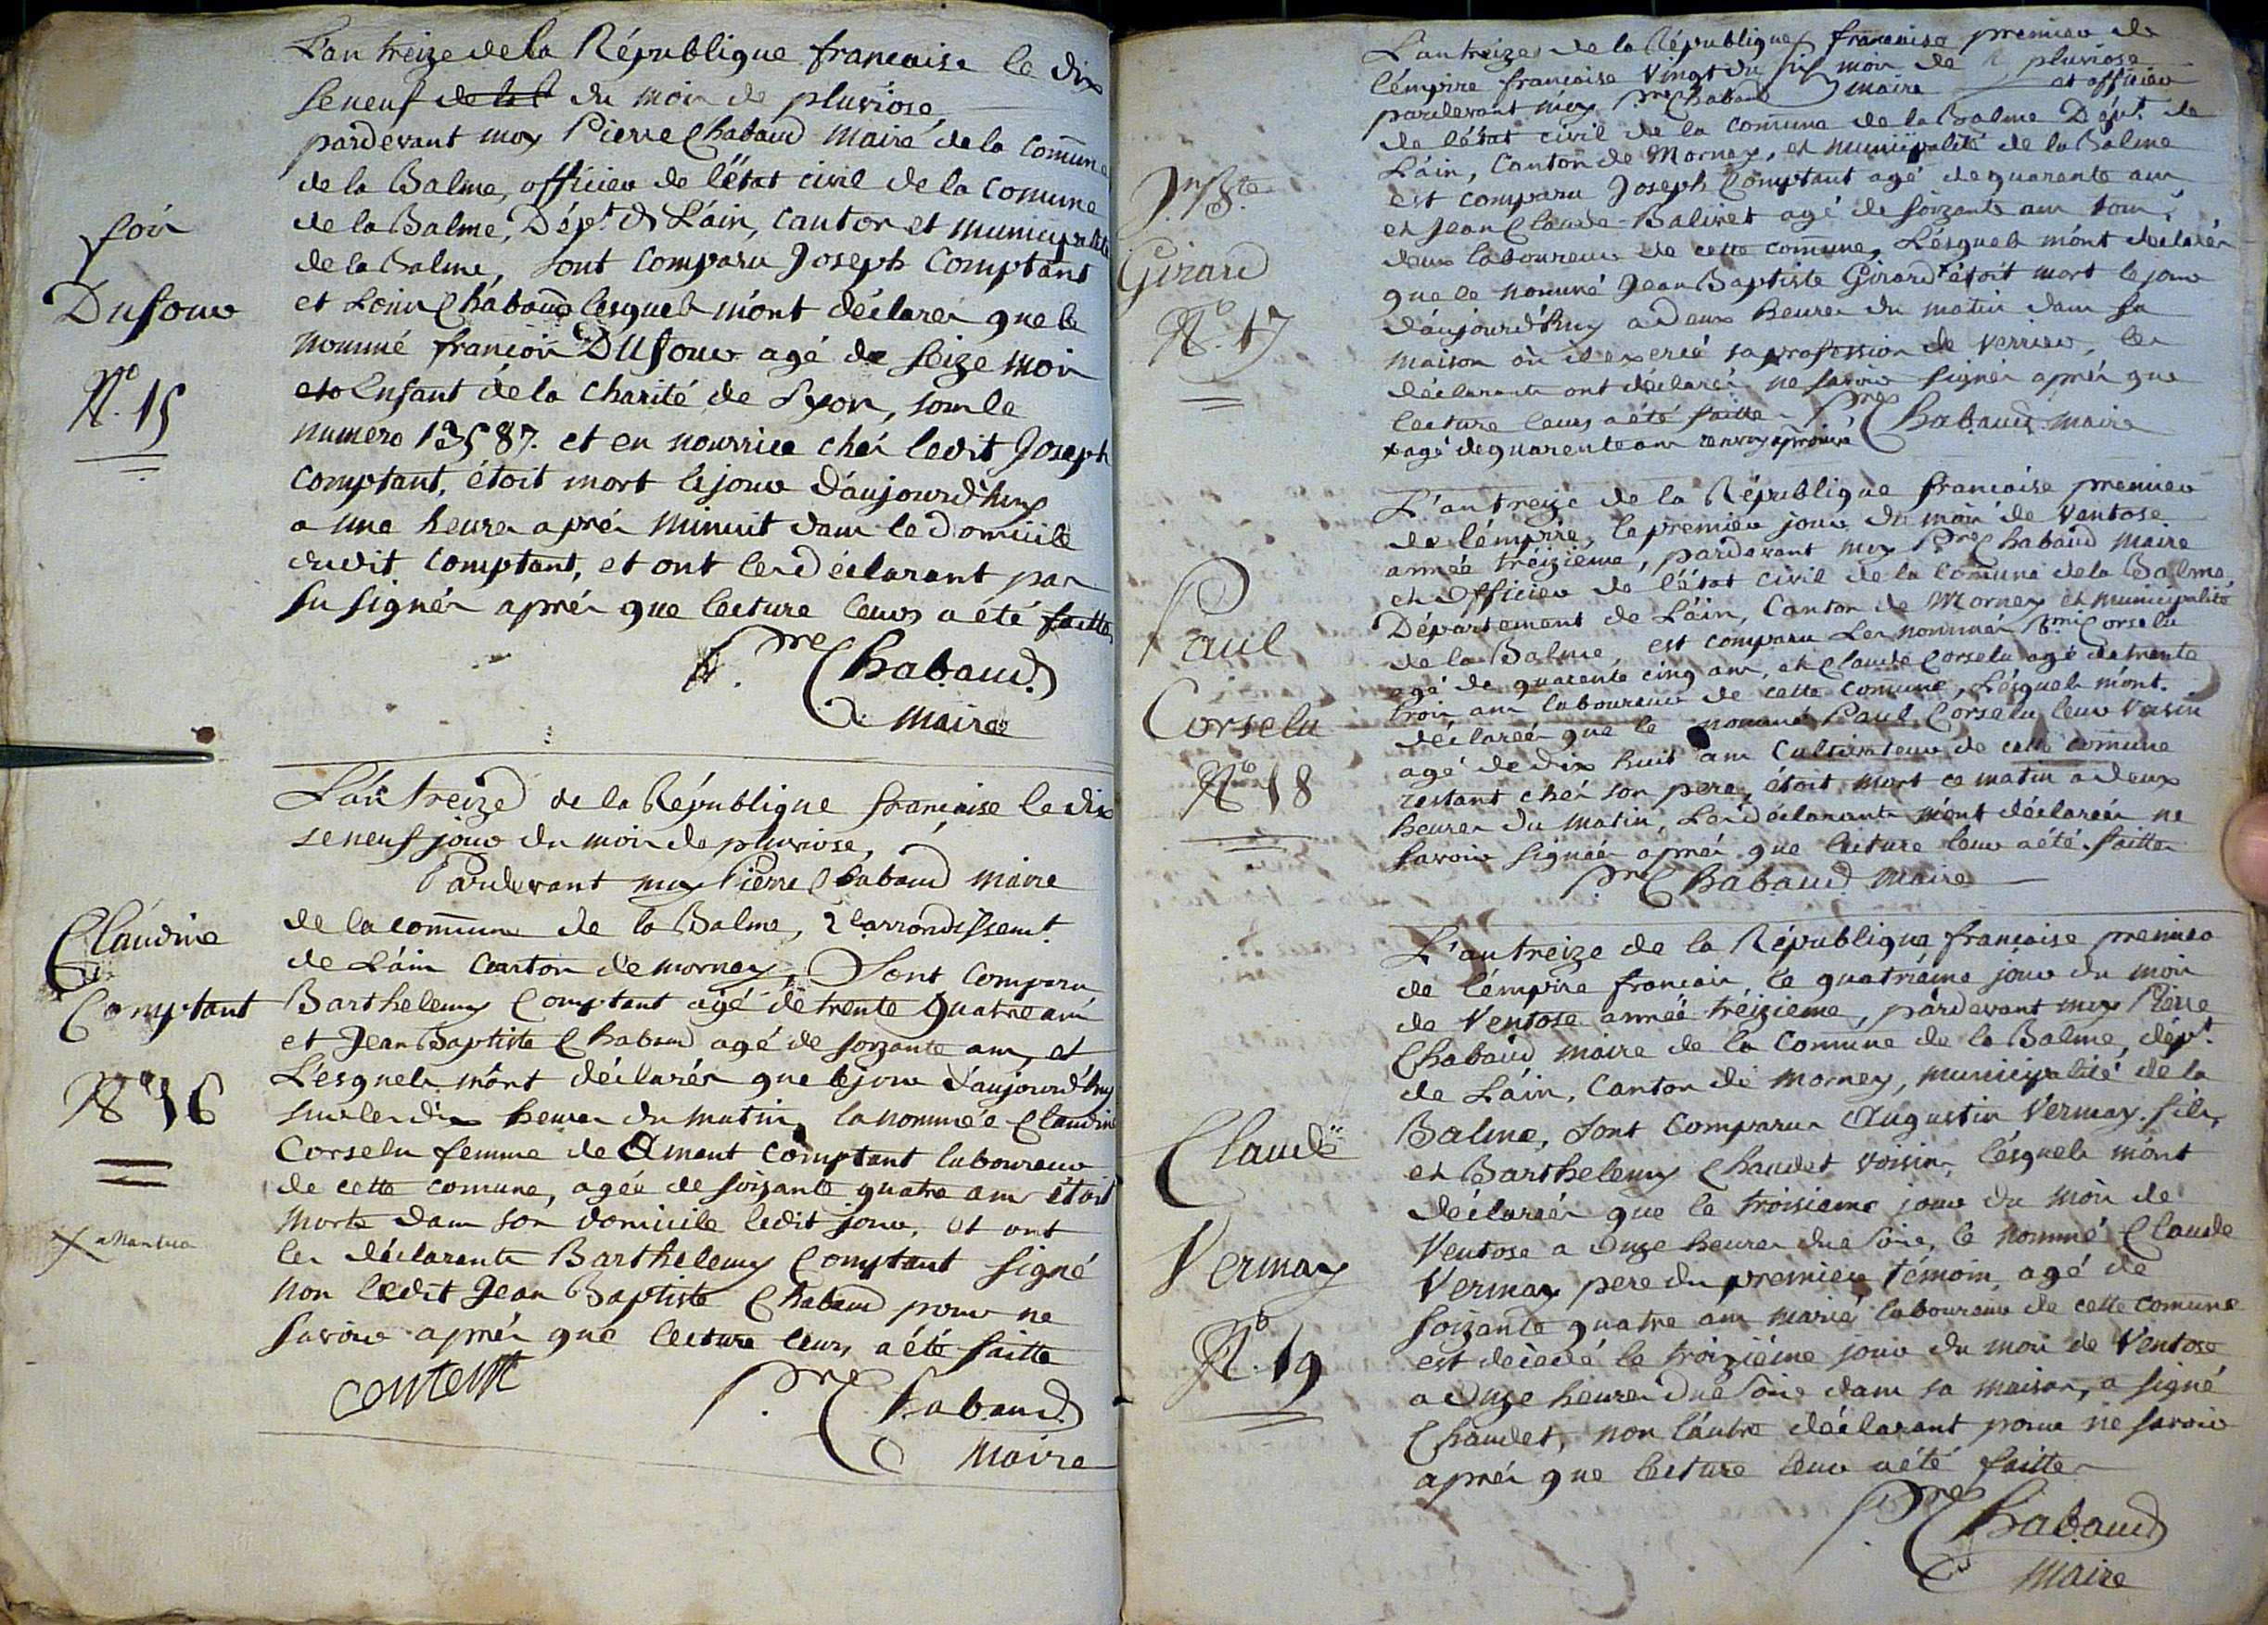 L'an treize de la République francaise le dix
seneuf du mois de pluviose
pardevant moy Pierre Chabaud Maire de la Commune
de la Balme, officier de l'état civil de la Comune
de la Balme, Dépt. de L'ain, Canton et municipalité
de la Balme, Sont Comparu Joseph Comptant
et Louis Chabaud lesquels m'ont déclarés que le
nommé francois Dufour agé de seize mois
Enfant de la Charité de Lyon, sous le
numero 13587. et en nourrice chés ledit Joseph
Comptant, étoit mort le jour d'aujourd'huy
a une heures après Minuit dans le Domicile
dudit Comptant, et ont les Déclarant pas
su signér aprés que lecture leurs a été faitte
Pre Chabaud
Maire
fois
Dufour
No. 15
L'an treize de la République francaise le dix
seneuf jour du mois de pluviose,
Pardevant moy Pierre Chabaud Maire
de la commune de la Balme, 2e arrondissemt.
de L'ain Canton de mornay, Sont Comparu
Barthelemy Comptant agé de trente quatre ans
et Jean Baptiste Chabaud agé de soizante ans, et
Lesquels m'ont déclarés que le jour d'aujourd'huy
sur les dix heures du matin, la nommée Claudine
Corselu femme de Amant Comptant laboureur
de cette comune, agée de soizante quatre ans étoit
Morte dans son domicile ledit jour, et ont
les déclarants Barthelemy Comptant signé
non ledit Jean Baptiste Chabaud pour ne
savoir aprés que lecture leurs a été faitte
Pre Chabaud
Maire
Claudine
Comptant
No 16
L'an treizes de la République francaise premier de
l'émpire francaise Vingt du mois de pluviose
pardevant moy Pre Chabaud maire et officier
de l'état civil de la Comune de la Balme Dépt. de
L'ain, Canton de Mornay, et municipalité de la Balme
est comparu Joseph Comptant agé de quarante ans
et Jean Claude Balivet agé de soizante ans tous
deux laboureurs de cette comune, Lésquels m'ont déclarés
que le nommé Jean Baptiste Girard x étoit mort le jour
d'aujourd'huy a Deux heures du matin dans sa
maison où il exercé sa profession de verrier, les
déclarants ont déclarés ne savoir signér aprés que
lecture leurs a été faitte Pre Chabaud maire
x agé de quarente ans renvoy aprouvé
Jn Bte
Girard
No. 17
L'an treize de la République francaise premier
de l'émpire, le premier jour du mois de Ventose
année tréizieme, pardevant moy Pre Chabaud maire
et Officier de l'état civil de la Comune de la Balme,
Département de L'ain, Canton de Mornay et municipalité
de la Balme, est comparu Les nommés Corselu
agé de quarente cinq ans, et Claude Corselu agé de trente
trois ans laboureurs de cette comune, Lésquels m'ont
déclareés que le nommé Paul Corselu leur voisin
agé de dix huit ans Cultivateur de cette commune
restant chés son pere, étoit mort ce matin a deux
heures du Matin, Les Déclarants m'ont déclareés ne
savoir signeér aprés que lecture leur a été faitte
Pre Chabaud Maire
Paul
Corselu
No 18
L'an treize de la République francaise premier
de l'émpire francais, le quatriéme jour du mois
de Ventose anneé treizieme, pardevant moy Pierre
Chabaud maire de la Comune de la Balme, dépt.
de L'ain, Canton de Mornay, municipalité de la
Balme, Sont Comparus Augustin Vermay fils,
et Barthelemy Chaudet voisin, lésquels m'ont
déclareés que le troisieme jour du mois de
Ventose a Onze heures du soire, le nommé Claude
Vermay pere du premier témoin, agé de
soizante quatre ans marié laboureur de cette comune
est decedé le troiziéme jour du mois de Ventose
a Onze heures du soire dans sa maison, a signé
Chaudet, non l'autre déclarant pour ne savoir
aprés que lecture leur a été faitte
Pre Chabaud
Maire
Claude
Vermay
No. 19